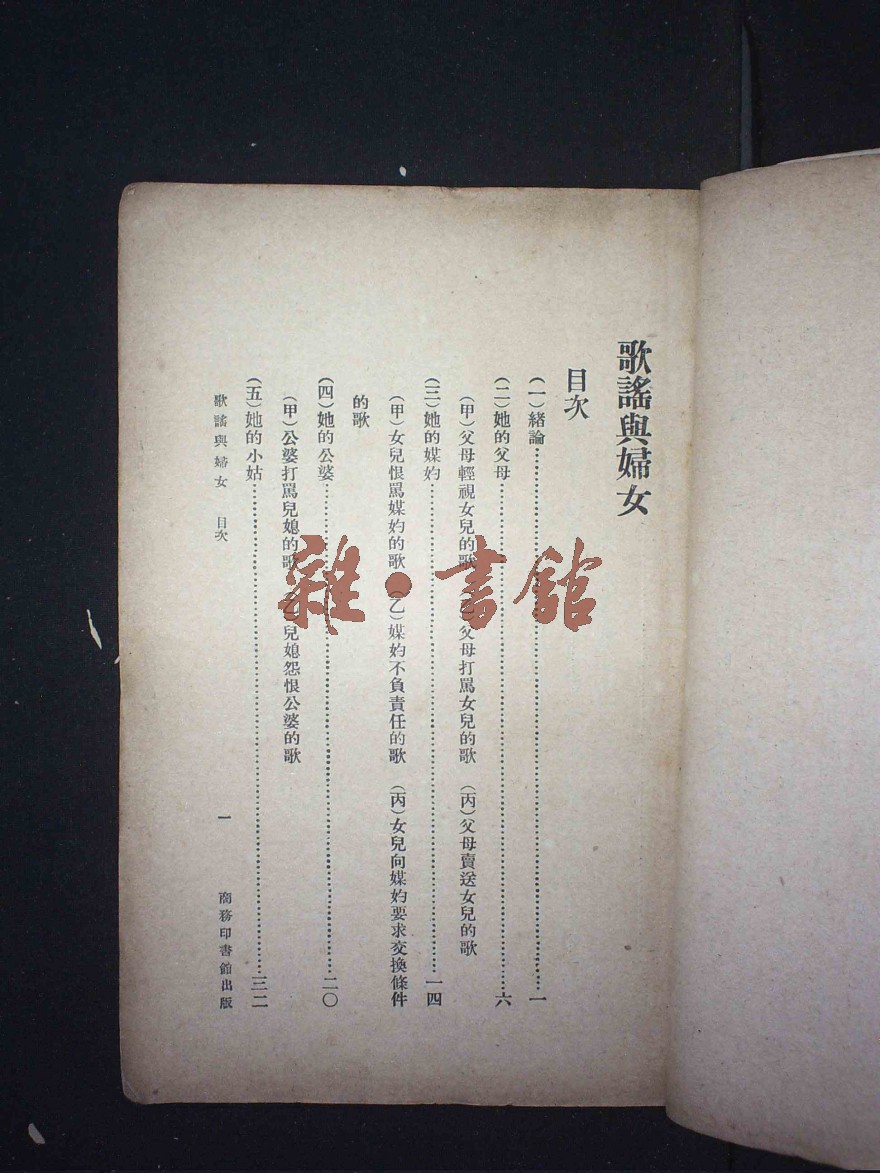 歌謠與婦女
目次
(一)緒論……一
(二)她的父母……六
(甲)父母輕視女兒的歌 (乙)父母打罵女兒的歌 (丙)父母賣送女兒的歌
(三)她的媒妁……一四
(甲)女兒恨罵媒妁的歌 (乙)媒妁不負責任的歌 (丙)女兒向媒妁要求交換條件
的歌
(四)她的公婆……二〇
(甲)公婆打罵兒媳的歌 (乙)兒媳怨恨公婆的歌
(五)她的小姑……三二
歌謠與婦女 目次 一 商務印書館出版
雜·書館